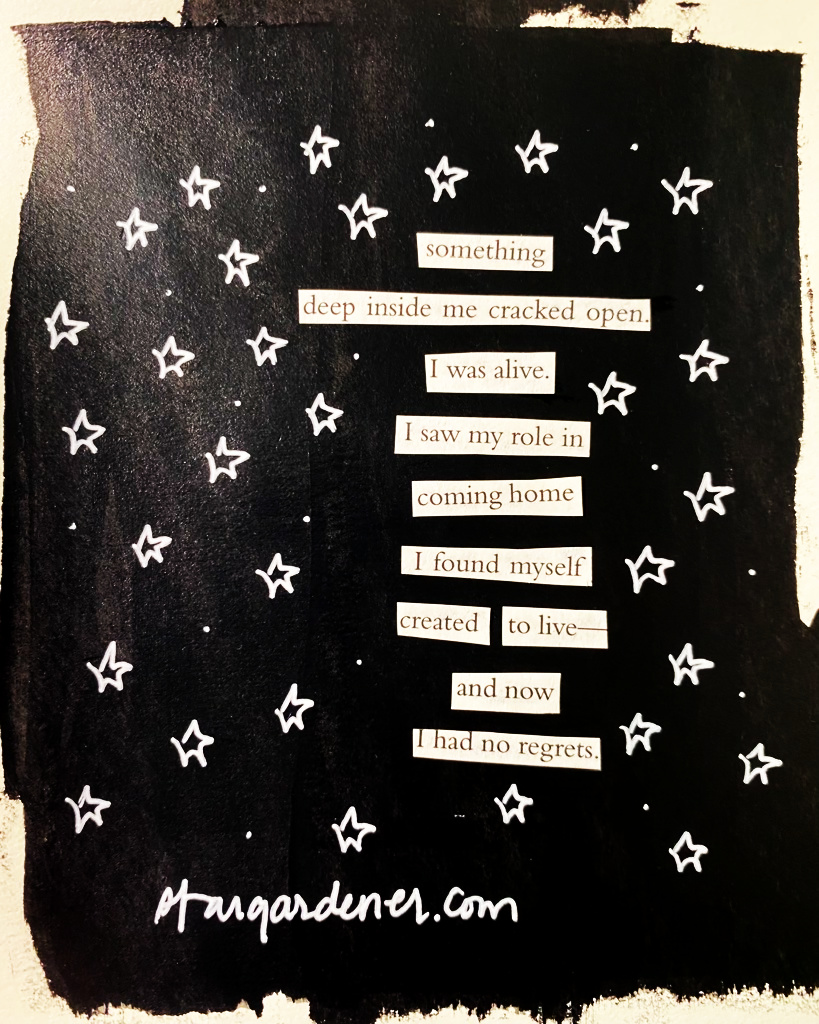 something
deep inside me cracked open.
I was alive.
I saw my role in
coming home
I found myself
created to live—
and now
I had no regrets.
stargardener.com